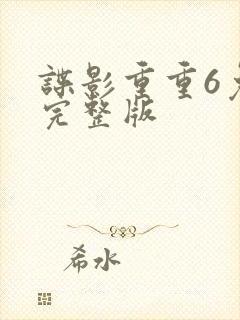 諜影重重6
完整版
希水